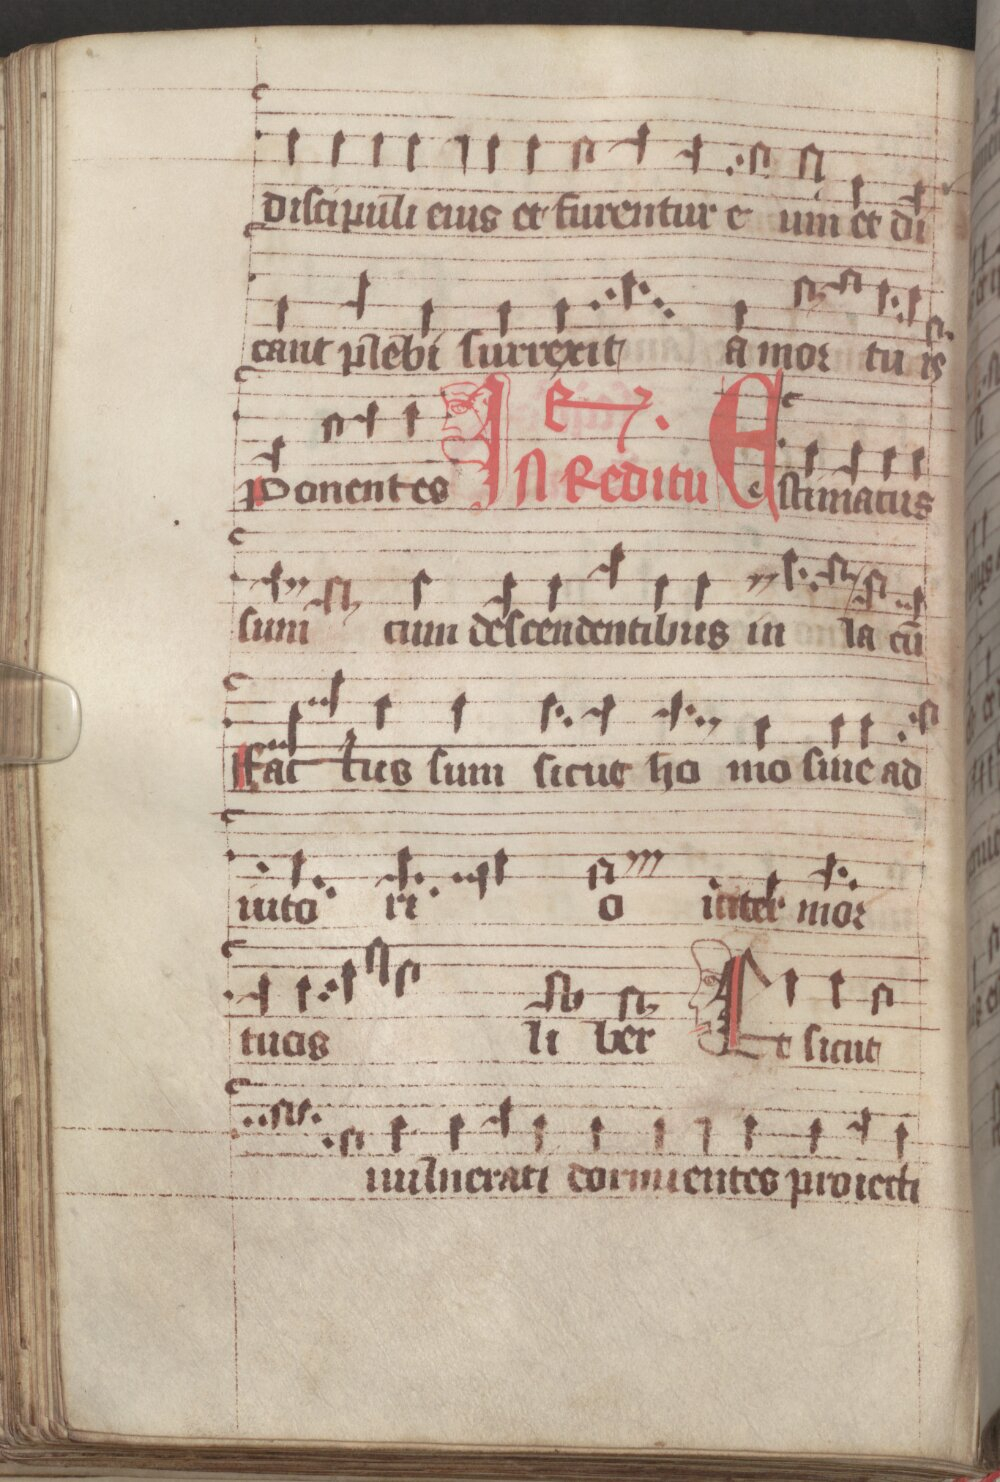 discipuli eius et furentur e um et di
cant plebi surrexit a mor tu is
Ponentes In Reditu Estimatus
sum cum descendentibus in la cū
Fac tus sum sicut ho mo sine ad
iuto ri o inter mor
tuos li ber Et sicut
uulnerati dormientes proiecti